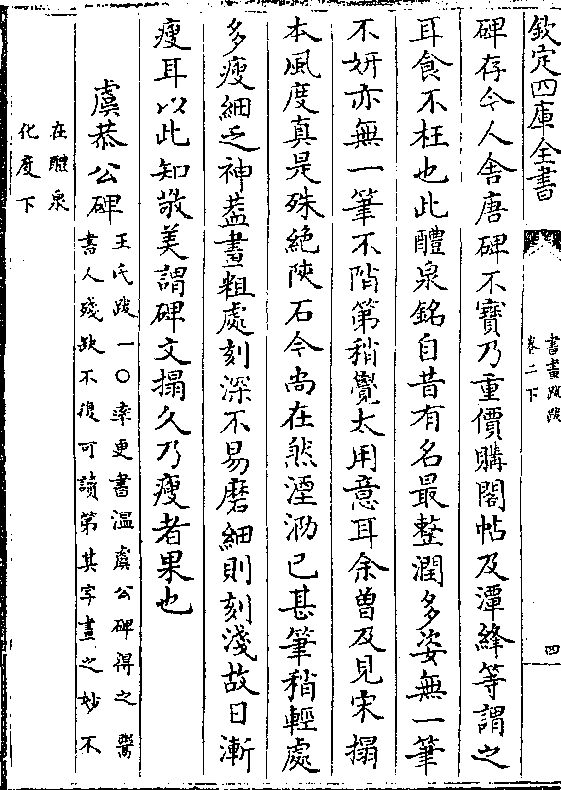 欽定四庫全書
書畫跋跋
卷二下
四
碑存今人舎唐碑不寳乃重價購閣帖及潭絳等謂之
耳食不枉也此醴泉銘自昔有名最整潤多姿無一筆
不妍亦無一筆不階第稍覺太用意耳余曽及見宋搨
本風度真是殊絶陜石今尚在然湮泐已甚筆稍輕處
多瘦細乏神葢畫粗處刻深不易磨細則刻淺故日漸
瘦耳以此知敬美謂碑文搨久乃瘦者果也
虞恭公碑
王氏跋一○率更書温虞公碑得之鬻
書人殘缺不復可讀第其字畫之妙不
在醴泉
化度下